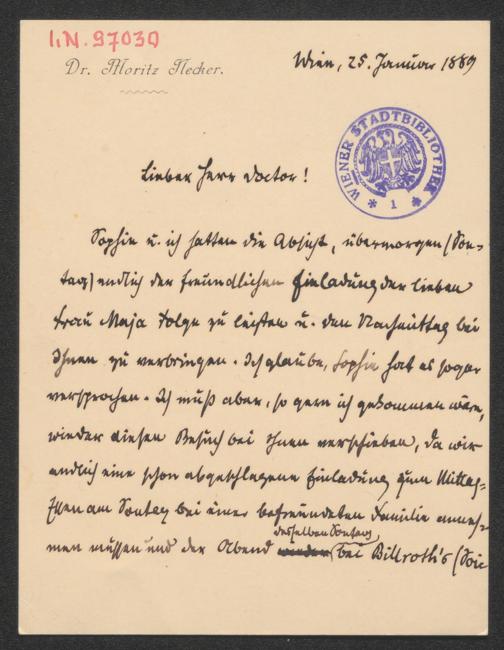 I.N. 97030
Dr. Moritz Necker.
Wien, 25. Januar 1889
WIENER STADTBIBLIOTHEK
* 1 *
Lieber Herr Doctor!
Sophie u. ich hatten die Absicht, übermorgen (Son-
tag) endlich der freundlichen Einladung der lieben
Frau Maja Folge zu leisten u. den Nachmittag bei
Ihnen zu verbringen. Ich glaube, Sophie hat es sogar
versprochen. Ich muß aber, so gern ich gekommen wäre,
wieder diesen Besuch bei Ihnen verschieben, da wir
endlich eine schon abgeschlagene Einladung zum Mittag-
Essen am Sontag bei einer befreundeten Familie anneh-
desselben Sontags
men müssen und der Abend bei Billroth's (Soi-